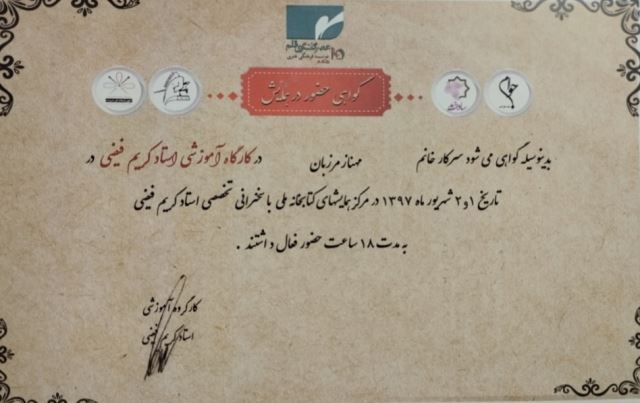 عصر گفتگوی قلم
موسسه فرهنگی هنری
گواهی حضور در همایش
بدینوسیله گواهی می شود سرکار خانم مهناز مرزبان در کارگاه آموزشی استاد کریم فیضی در
تاریخ ۱و۲ شهریور ماه ۱۳۹۷ در مرکز همایشهای کتابخانه ملی با سخنرانی تخصصی استاد کریم فیضی
به مدت ۱۸ ساعت حضور فعال داشتند .
کارگروه آموزشی
استاد کریم فیضی